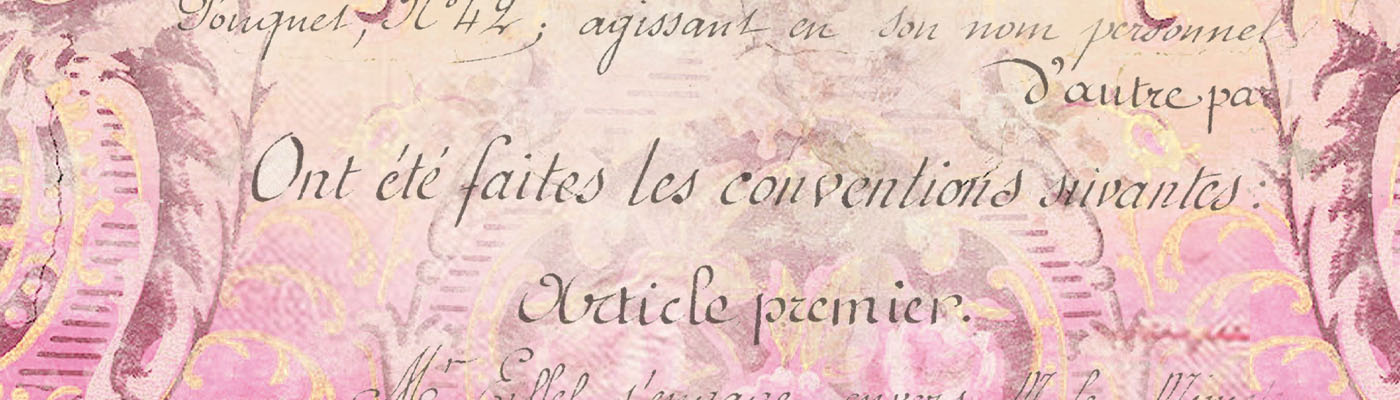 Fouquet, N° 42 ; agissant en son nom personnel
D'autre par
Ont été faites les conventions suivantes :
Article premier.
Mr Eiffel s'engage envers M. le Minist